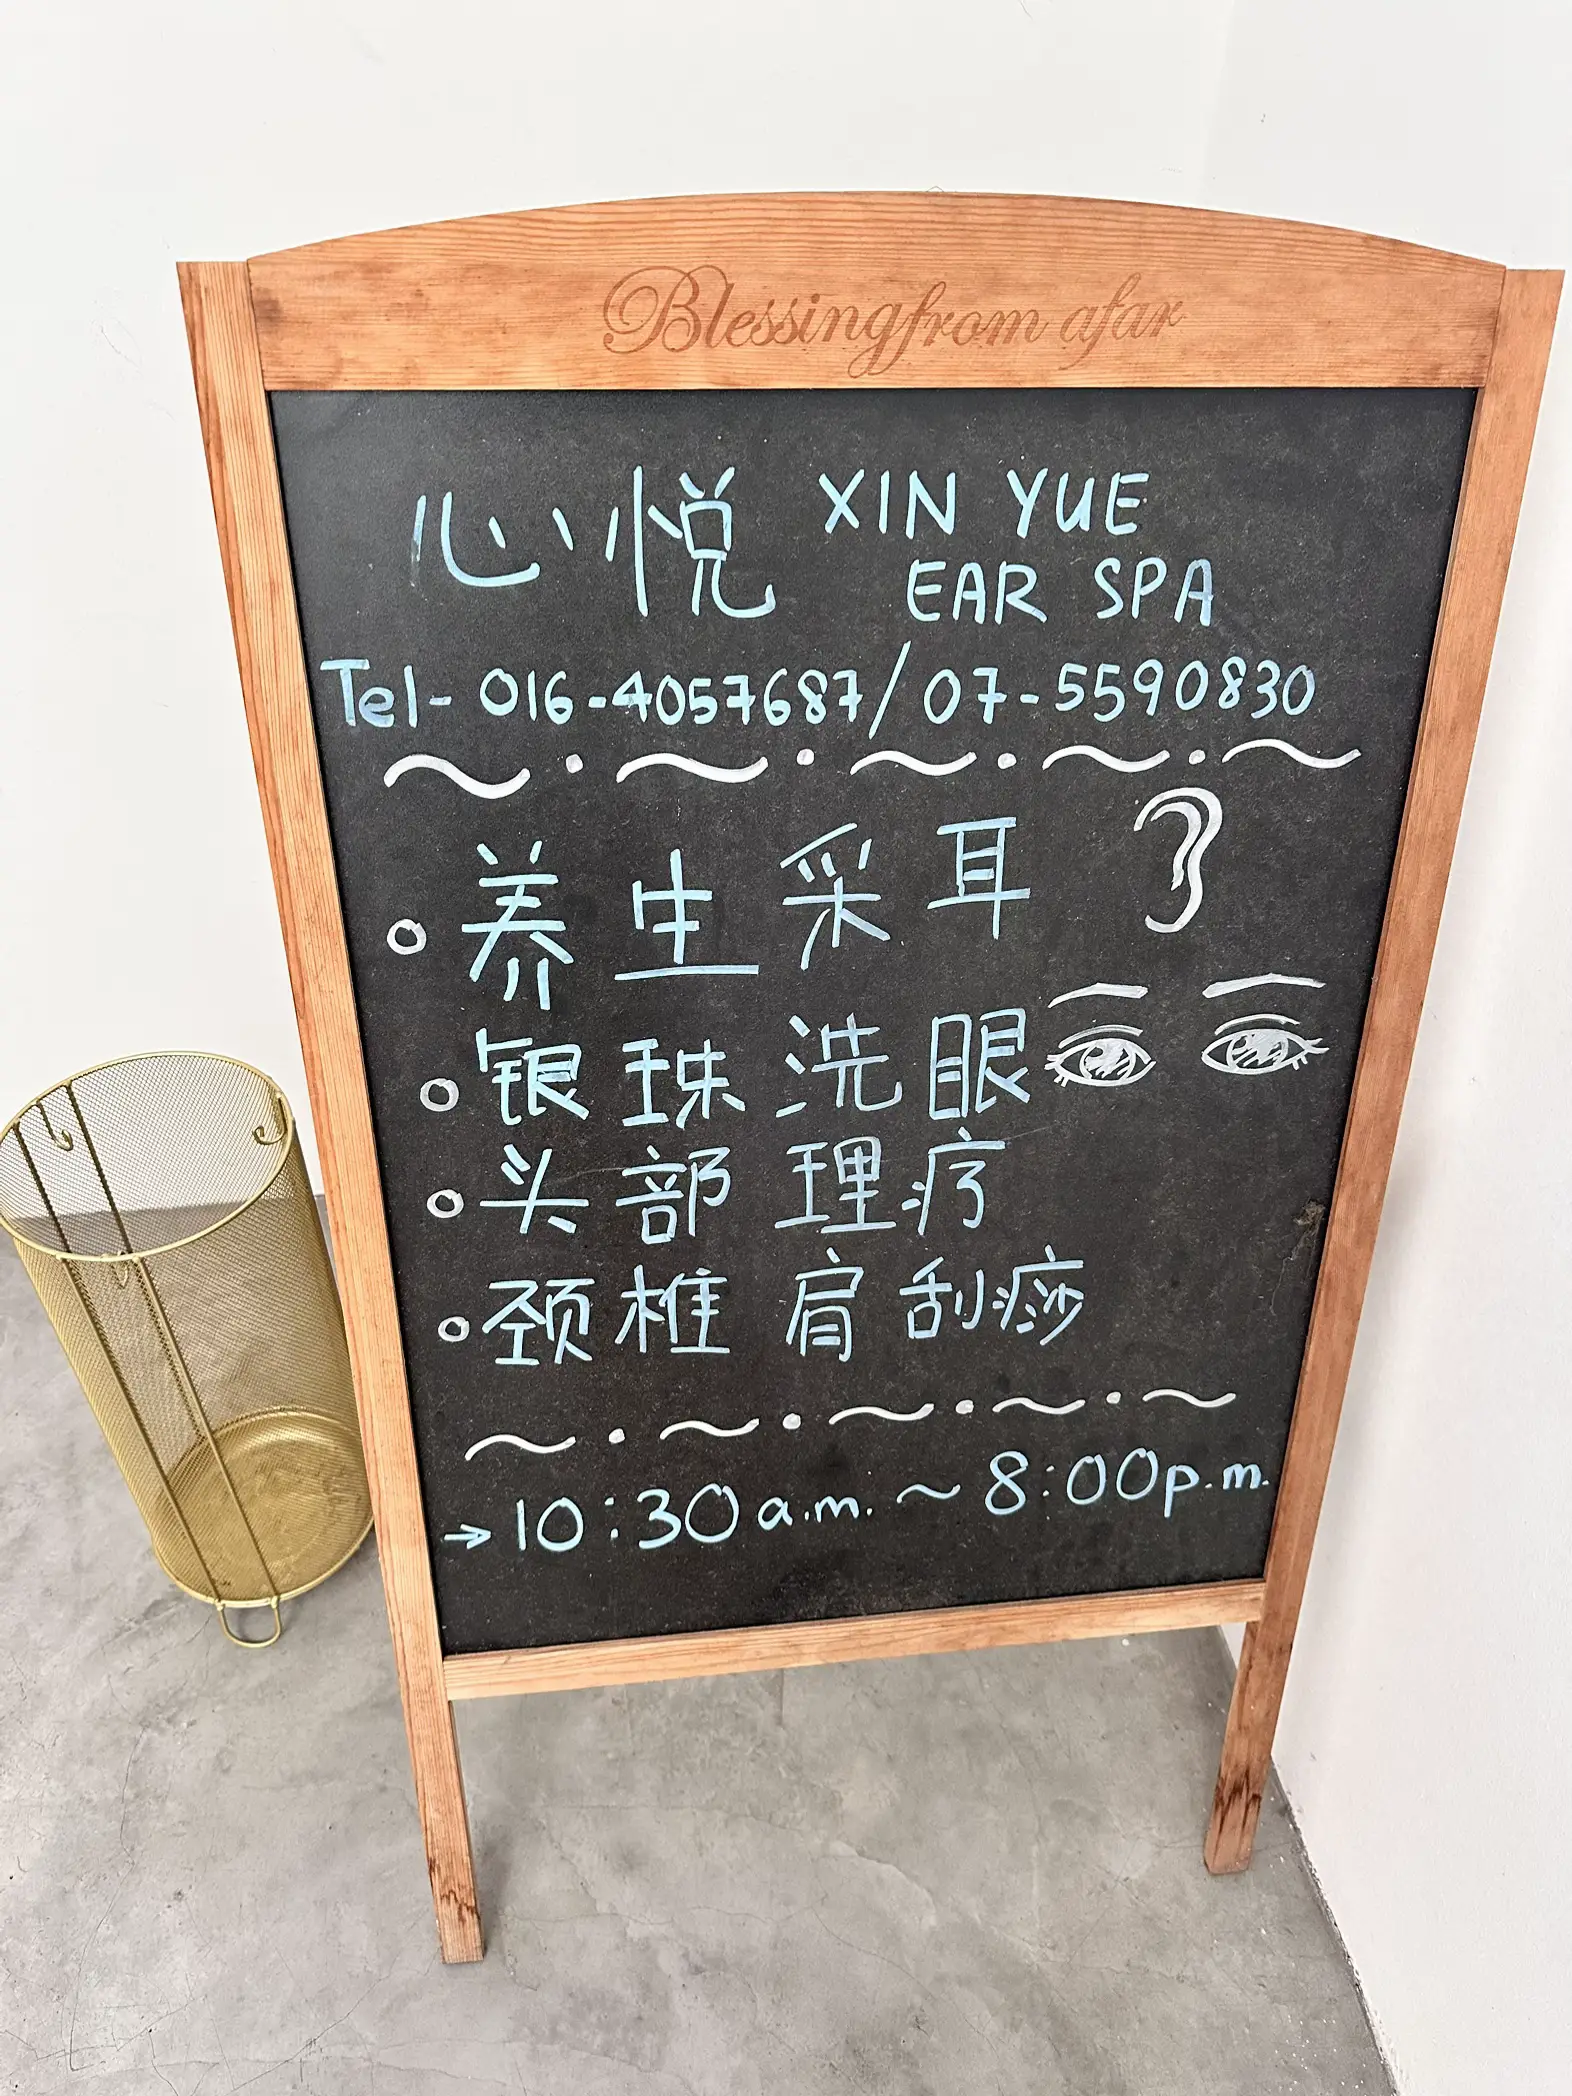 Blessing from afar
心悦 XIN YUE
EAR SPA
Tel- 016-4057687/07-5590830
养生采耳
银珠洗眼
头部理疗
颈椎肩刮痧
→ 10:30a.m. ~ 8:00p.m.